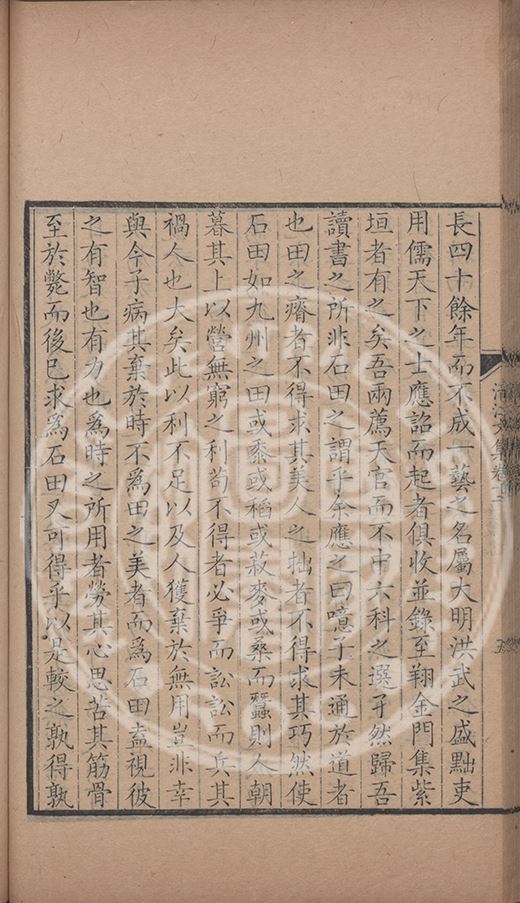 長四十餘年而不成一藝之名屬大明洪武之盛黜吏
用儒天下之士應詔而起者俱收並錄至翔金門集紫
垣者有之矣吾兩薦天官而不中六科之選孑然歸吾
讀書之所非石田之謂乎余應之曰噫子未通於道者
也田之瘠者不得求其美人之拙者不得求其巧然使
石田如九州之田或黍或稻或菽麥或桑而蠶則人朝
暮其上以營無窮之利苟不得者必爭而訟訟而兵其
禍人也大矣此以利不足以及人獲棄於無用豈非幸
與今子病其棄於時不為田之美者而為石田盍視彼
之有智也有力也為時之所用者勞其心思苦其筋骨
至於斃而後已求為石田又可得乎以是較之孰得孰